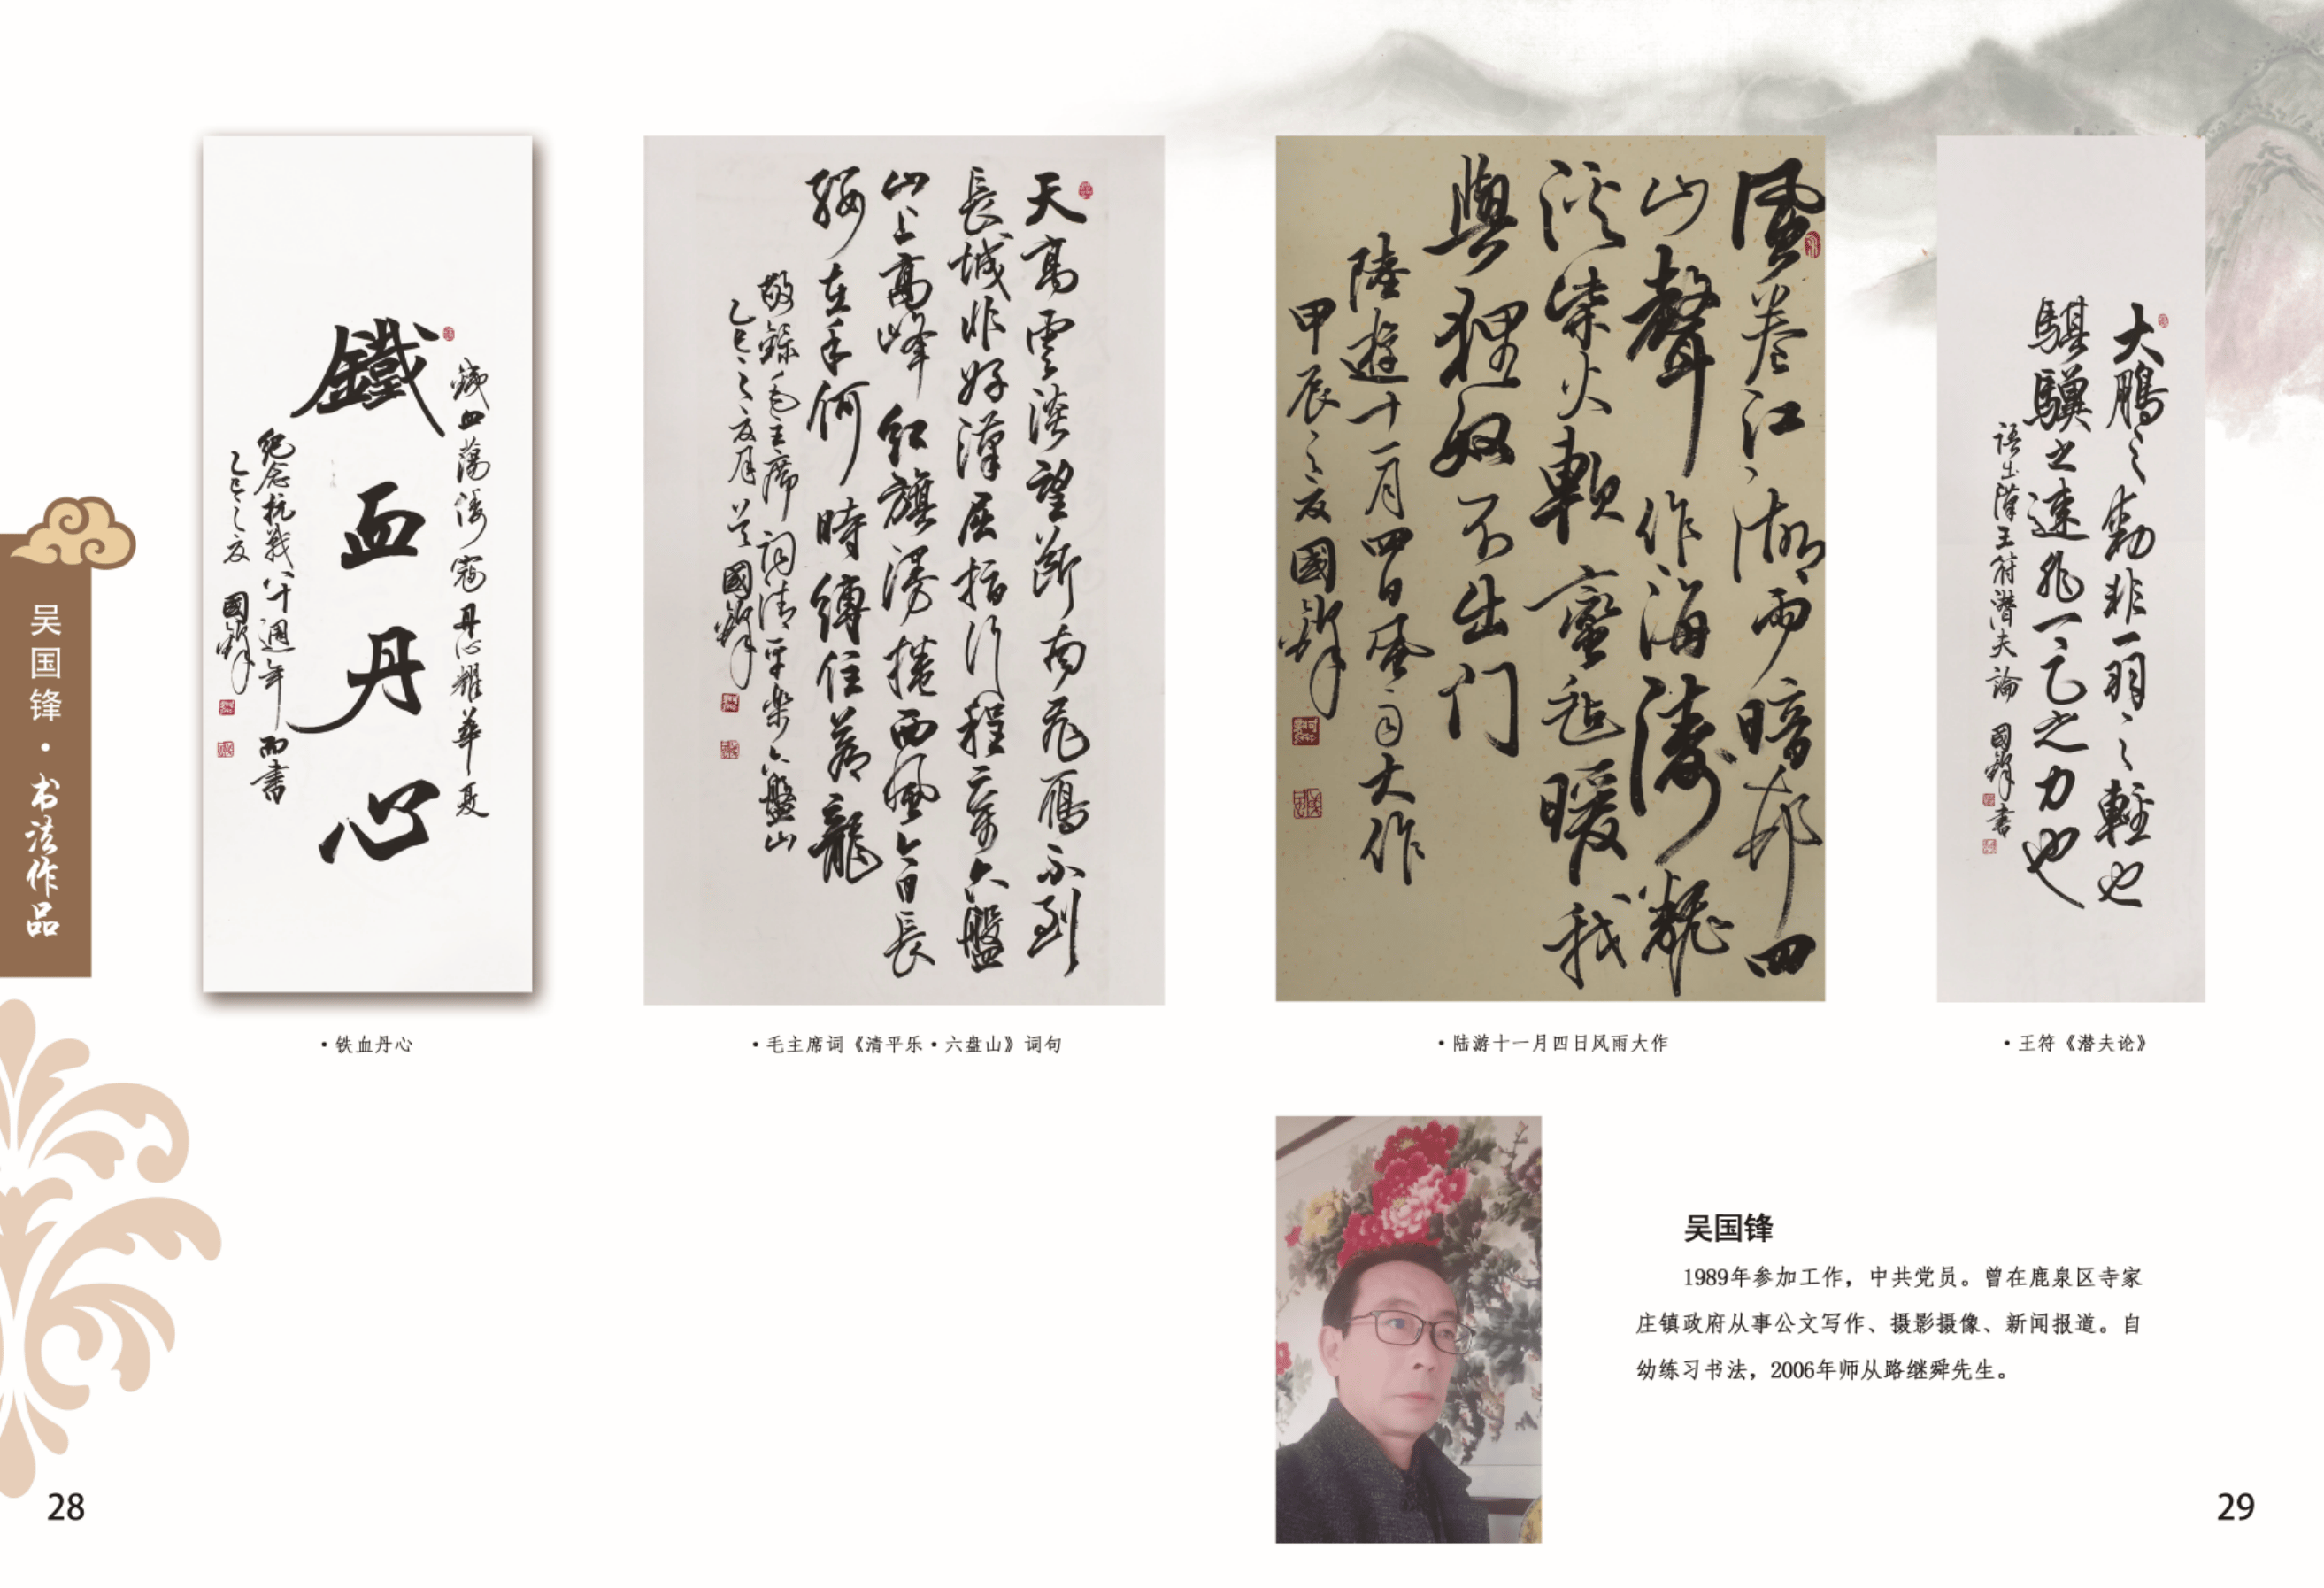 吴国锋·书法作品
鐵血蕩倭寇丹心耀華夏
鐵血丹心
紀念抗战八十週年而書
乙巳之夏 國鋒
·铁血丹心
天高雲淡望斷南飛雁不到
長城非好漢屈指行程二萬六盤
山上高峰紅旗漫捲西風今日長
纓在手何時縛住蒼龍
敬錄毛主席词清平樂六盤山
乙巳之夏月 國鋒
·毛主席词《清平乐·六盘山》词句
風卷江湖雨暗邨四
山聲作海濤飜
溪柴火軟蛮毡暖我
與狸奴不出门
陸遊十一月四日風雨大作
甲辰之夏國鋒
·陆游十一月四日风雨大作
大鵬之動非一羽之輕也
騏驥之速非一足之力也
语出漢王符潜夫論 國鋒書
·王符《潜夫论》
吴国锋
1989年参加工作，中共党员。曾在鹿泉区寺家
庄镇政府从事公文写作、摄影摄像、新闻报道。自
幼练习书法，2006年师从路继舜先生。
28
29